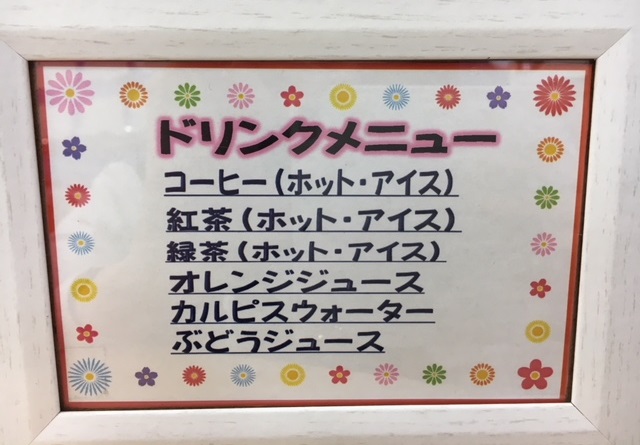 ドリンクメニュー
コーヒー(ホット・アイス)
紅茶(ホット・アイス)
緑茶(ホット・アイス)
オレンジジュース
カルピスウォーター
ぶどうジュース